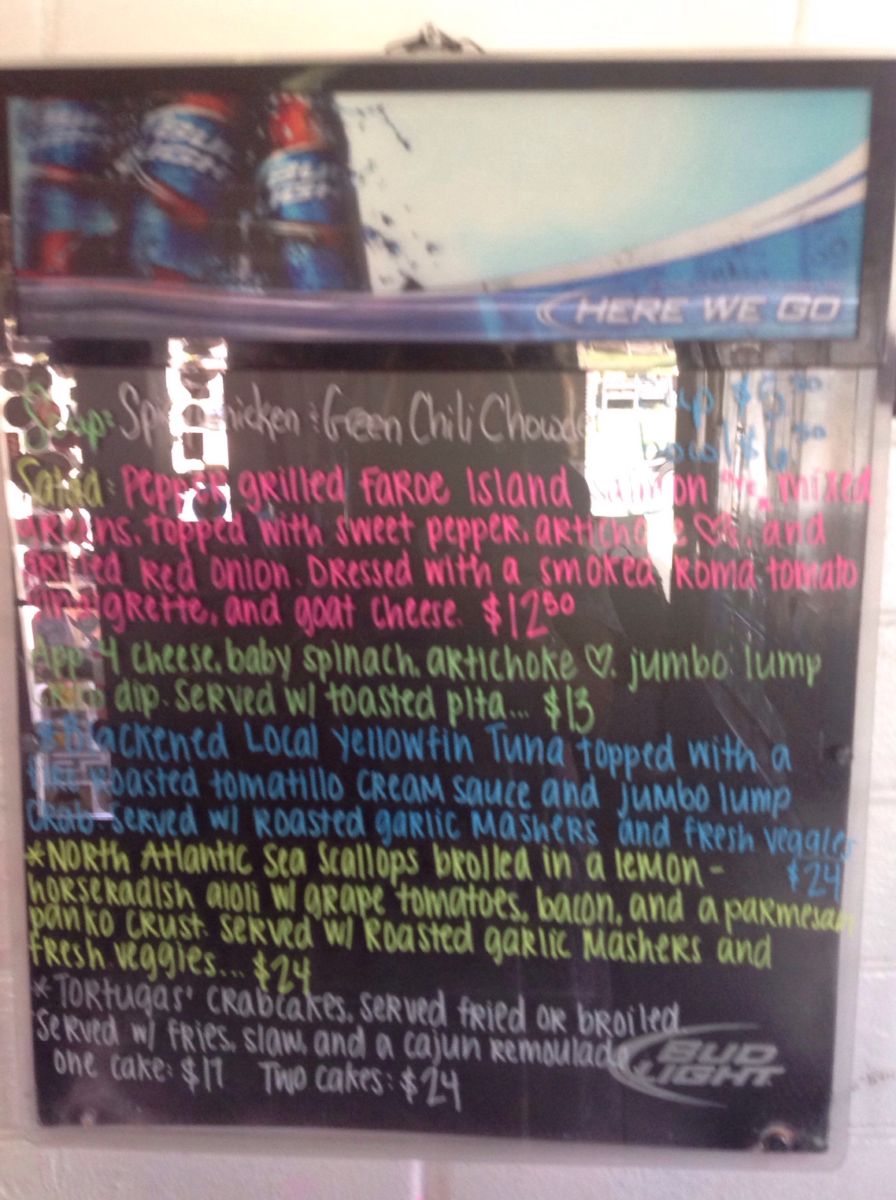 BUD LIGHT
BUD LIGHT
HERE WE GO
Soup: Spicy Chicken : Green Chili Chowder
cup $5.50
bowl $6.50
Salad: Pepper grilled Faroe Island Salmon mixed
greens, topped with sweet pepper, artichoke ♡s, and
grilled red onion. Dressed with a smoked Roma tomato
vinaigrette, and goat cheese. $12.50
App 4 cheese, baby spinach, artichoke ♡, jumbo lump
crab dip. Served w/ toasted pita... $13
*Blackened Local Yellowfin Tuna topped with a
roasted tomatillo cream sauce and jumbo lump
crab. Served w/ roasted garlic mashers and fresh veggies
$24
*North Atlantic Sea Scallops brolled in a lemon-
horseradish aioli w/ grape tomatoes, bacon, and a parmesan
panko crust. Served w/ roasted garlic mashers and
fresh veggies... $24
*Tortugas' crabcakes, served fried or broiled
served w/ fries, slaw, and a cajun remoulade
one cake: $17 Two cakes: $24
BUD
LIGHT